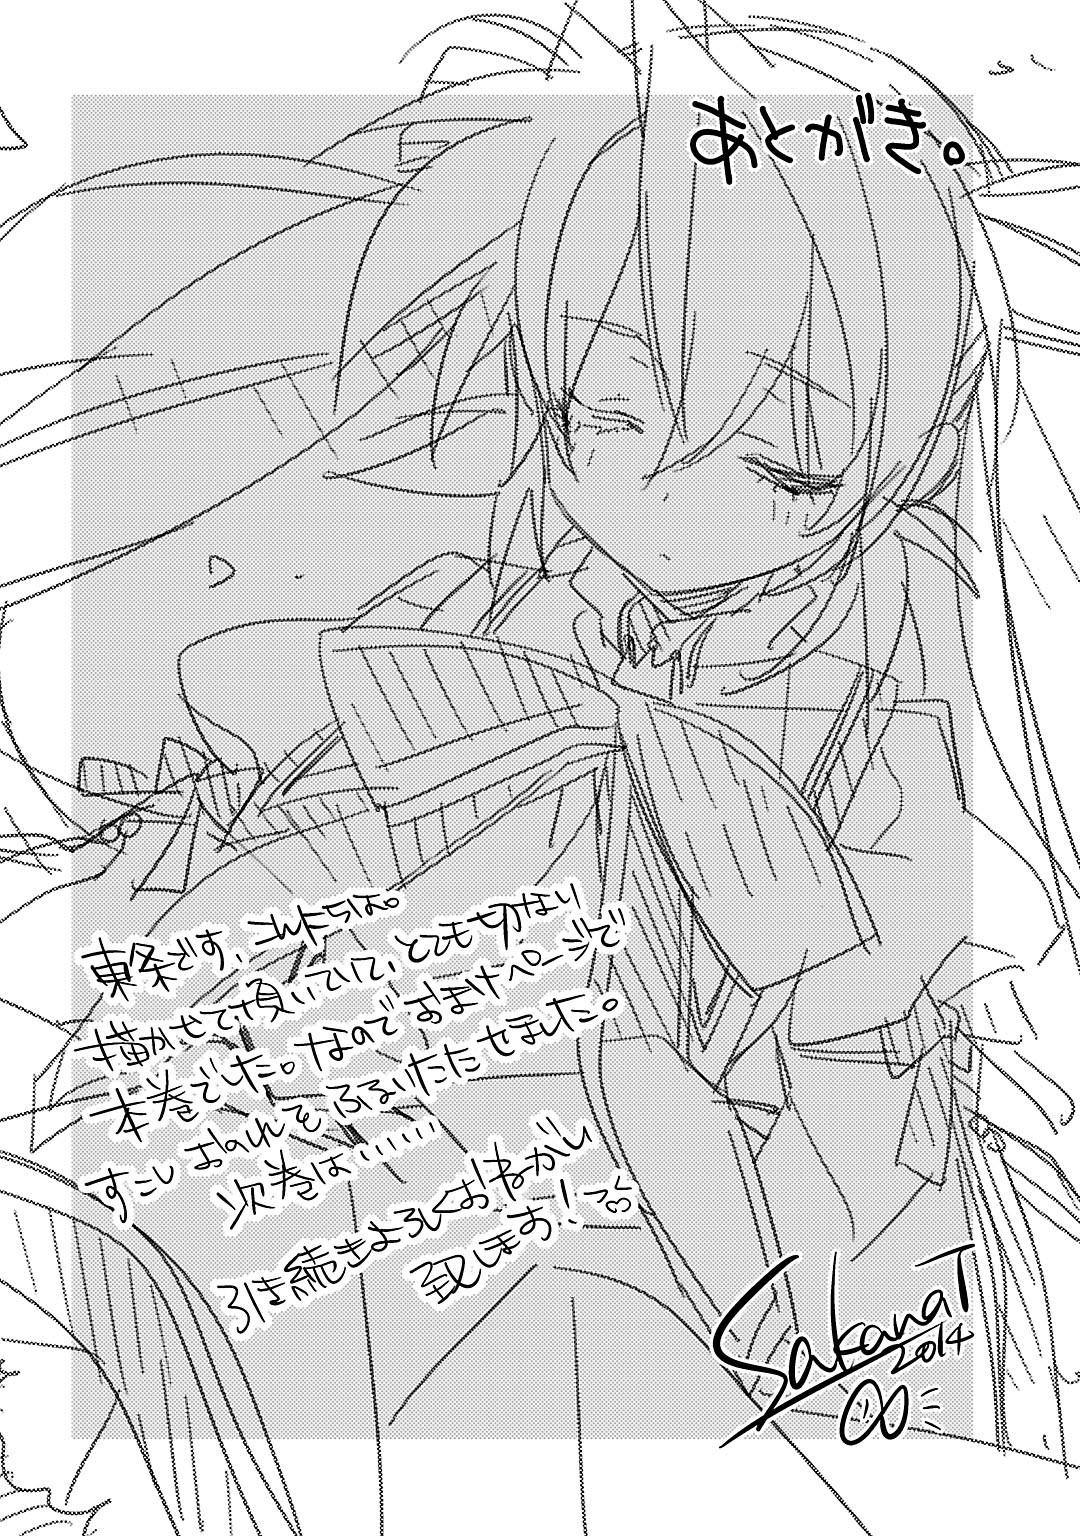 あとがき。
東条です、こんにちは。
描かせて頂いていて、とても切ない
本巻でした。なのでおまけページで
すこしおのれをふるいたたせました。
次巻は……
引き続きよろしくおねがい
致します!
SakanaT
2014